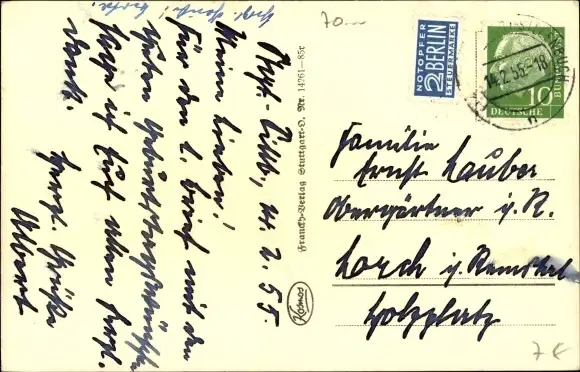 Hptst.-Tübb, 14.2.55.
Meine Lieben!
Für den l. Brief mit den
guten Geburtstagswünschen
sage ich Euch allen herzl.
Dank.
Herzl. Grüße
Albert
Franckh-Verlag Stuttgart-O. Nr. 14261-85c
Kosmos
70.-
NOTOPFER
2 BERLIN
STEUERMARKE
14.2.55-18
10
DEUTSCHE
BUNDESPOST
Familie
Ernst Lauber
Obergärtner i. R.
Lorch i. Remstal
Holzplatz
7€